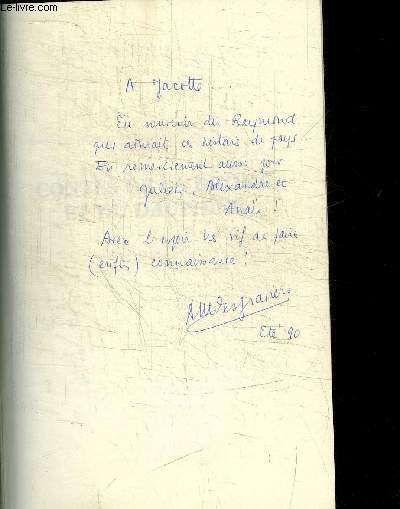 Le-livre.com
A Jacotte
En souvenir de Raymond
qui aimait ces histoires de pays
En remerciement aussi pour
Alexandre et
Anaïs !
Avec l'espoir très vif de faire
(enfin) connaissance !
Eté 90